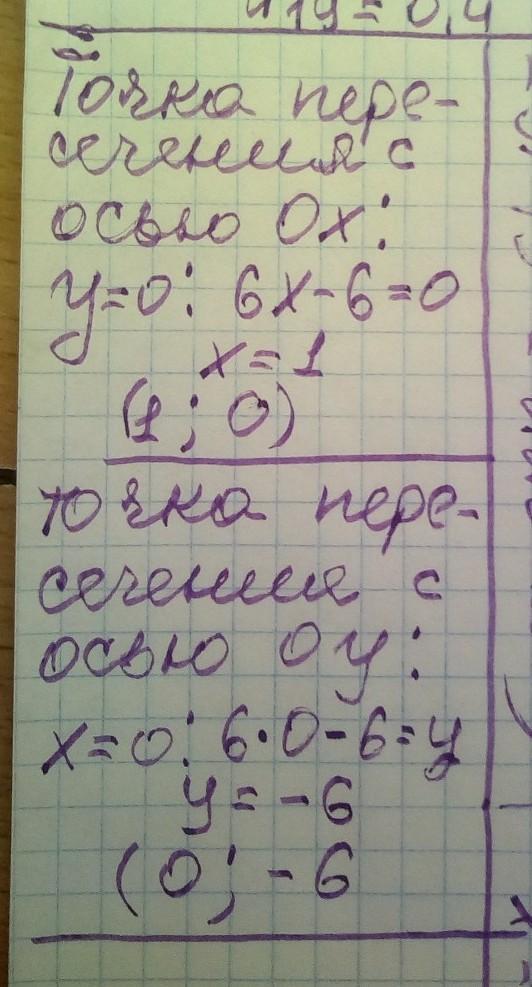 Точка пере-
сечения с
осью Ox:
y=0: 6x-6=0
x=1
(1; 0)
точка пере-
сечения с
осью Oy:
x=0: 6·0-6=y
y=-6
(0; -6